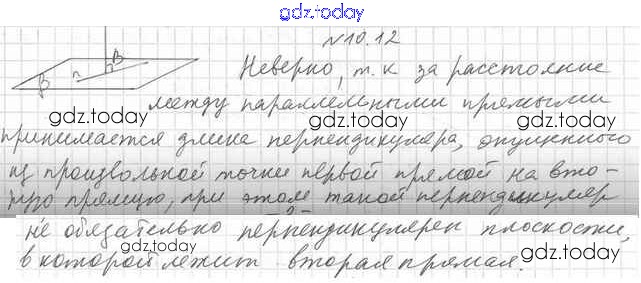 gdz.today
№10.12
B
β
n
Неверно, т.к за расстояние
gdz.today
gdz.today
gdz.today
между параллельными прямыми
принимается длина перпендикуляра, опущенного
из произвольной точки первой прямой на вто-
рую прямую, при этом такой перпендикуляр
не обязательно перпендикулярен плоскости,
gdz.today
gdz.today
в которой лежит вторая прямая.